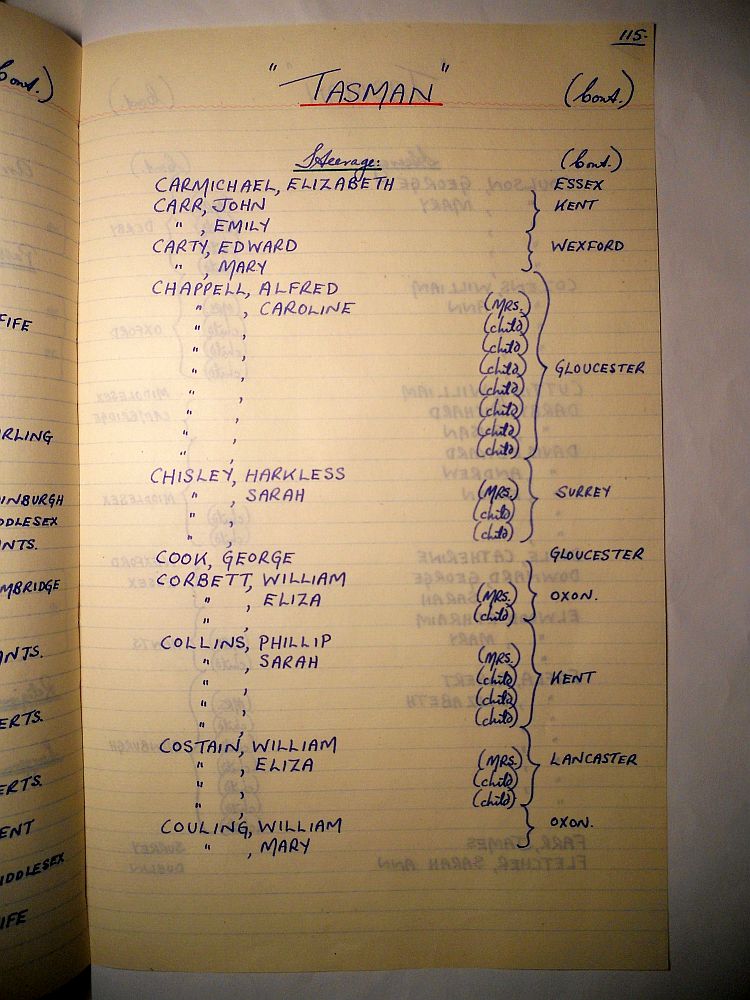 Cont.)
FIFE
RLING
INBURGH
DDLESEX
NTS.
MBRIDGE
NTS.
ERTS.
ERTS.
ENT
IDDLESEX
IFE
115.
"TASMAN" (Cont.)
Steerage: (Cont.)
CARMICHAEL, ELIZABETH ESSEX
CARR, JOHN KENT
" , EMILY
CARTY, EDWARD WEXFORD
" , MARY
CHAPPELL, ALFRED
" , CAROLINE (MRS.)
" , (child)
" , (child)
" , (child) GLOUCESTER
" , (child)
" , (child)
" , (child)
" , (child)
CHISLEY, HARKLESS
" , SARAH (MRS.) SURREY
" , (child)
" , (child)
COOK, GEORGE GLOUCESTER
CORBETT, WILLIAM
" , ELIZA (MRS.) OXON.
" , (child)
COLLINS, PHILLIP
" , SARAH (MRS.)
" , (child) KENT
" , (child)
" , (child)
COSTAIN, WILLIAM
" , ELIZA (MRS.) LANCASTER
" , (child)
" , (child)
COULING, WILLIAM OXON.
" , MARY